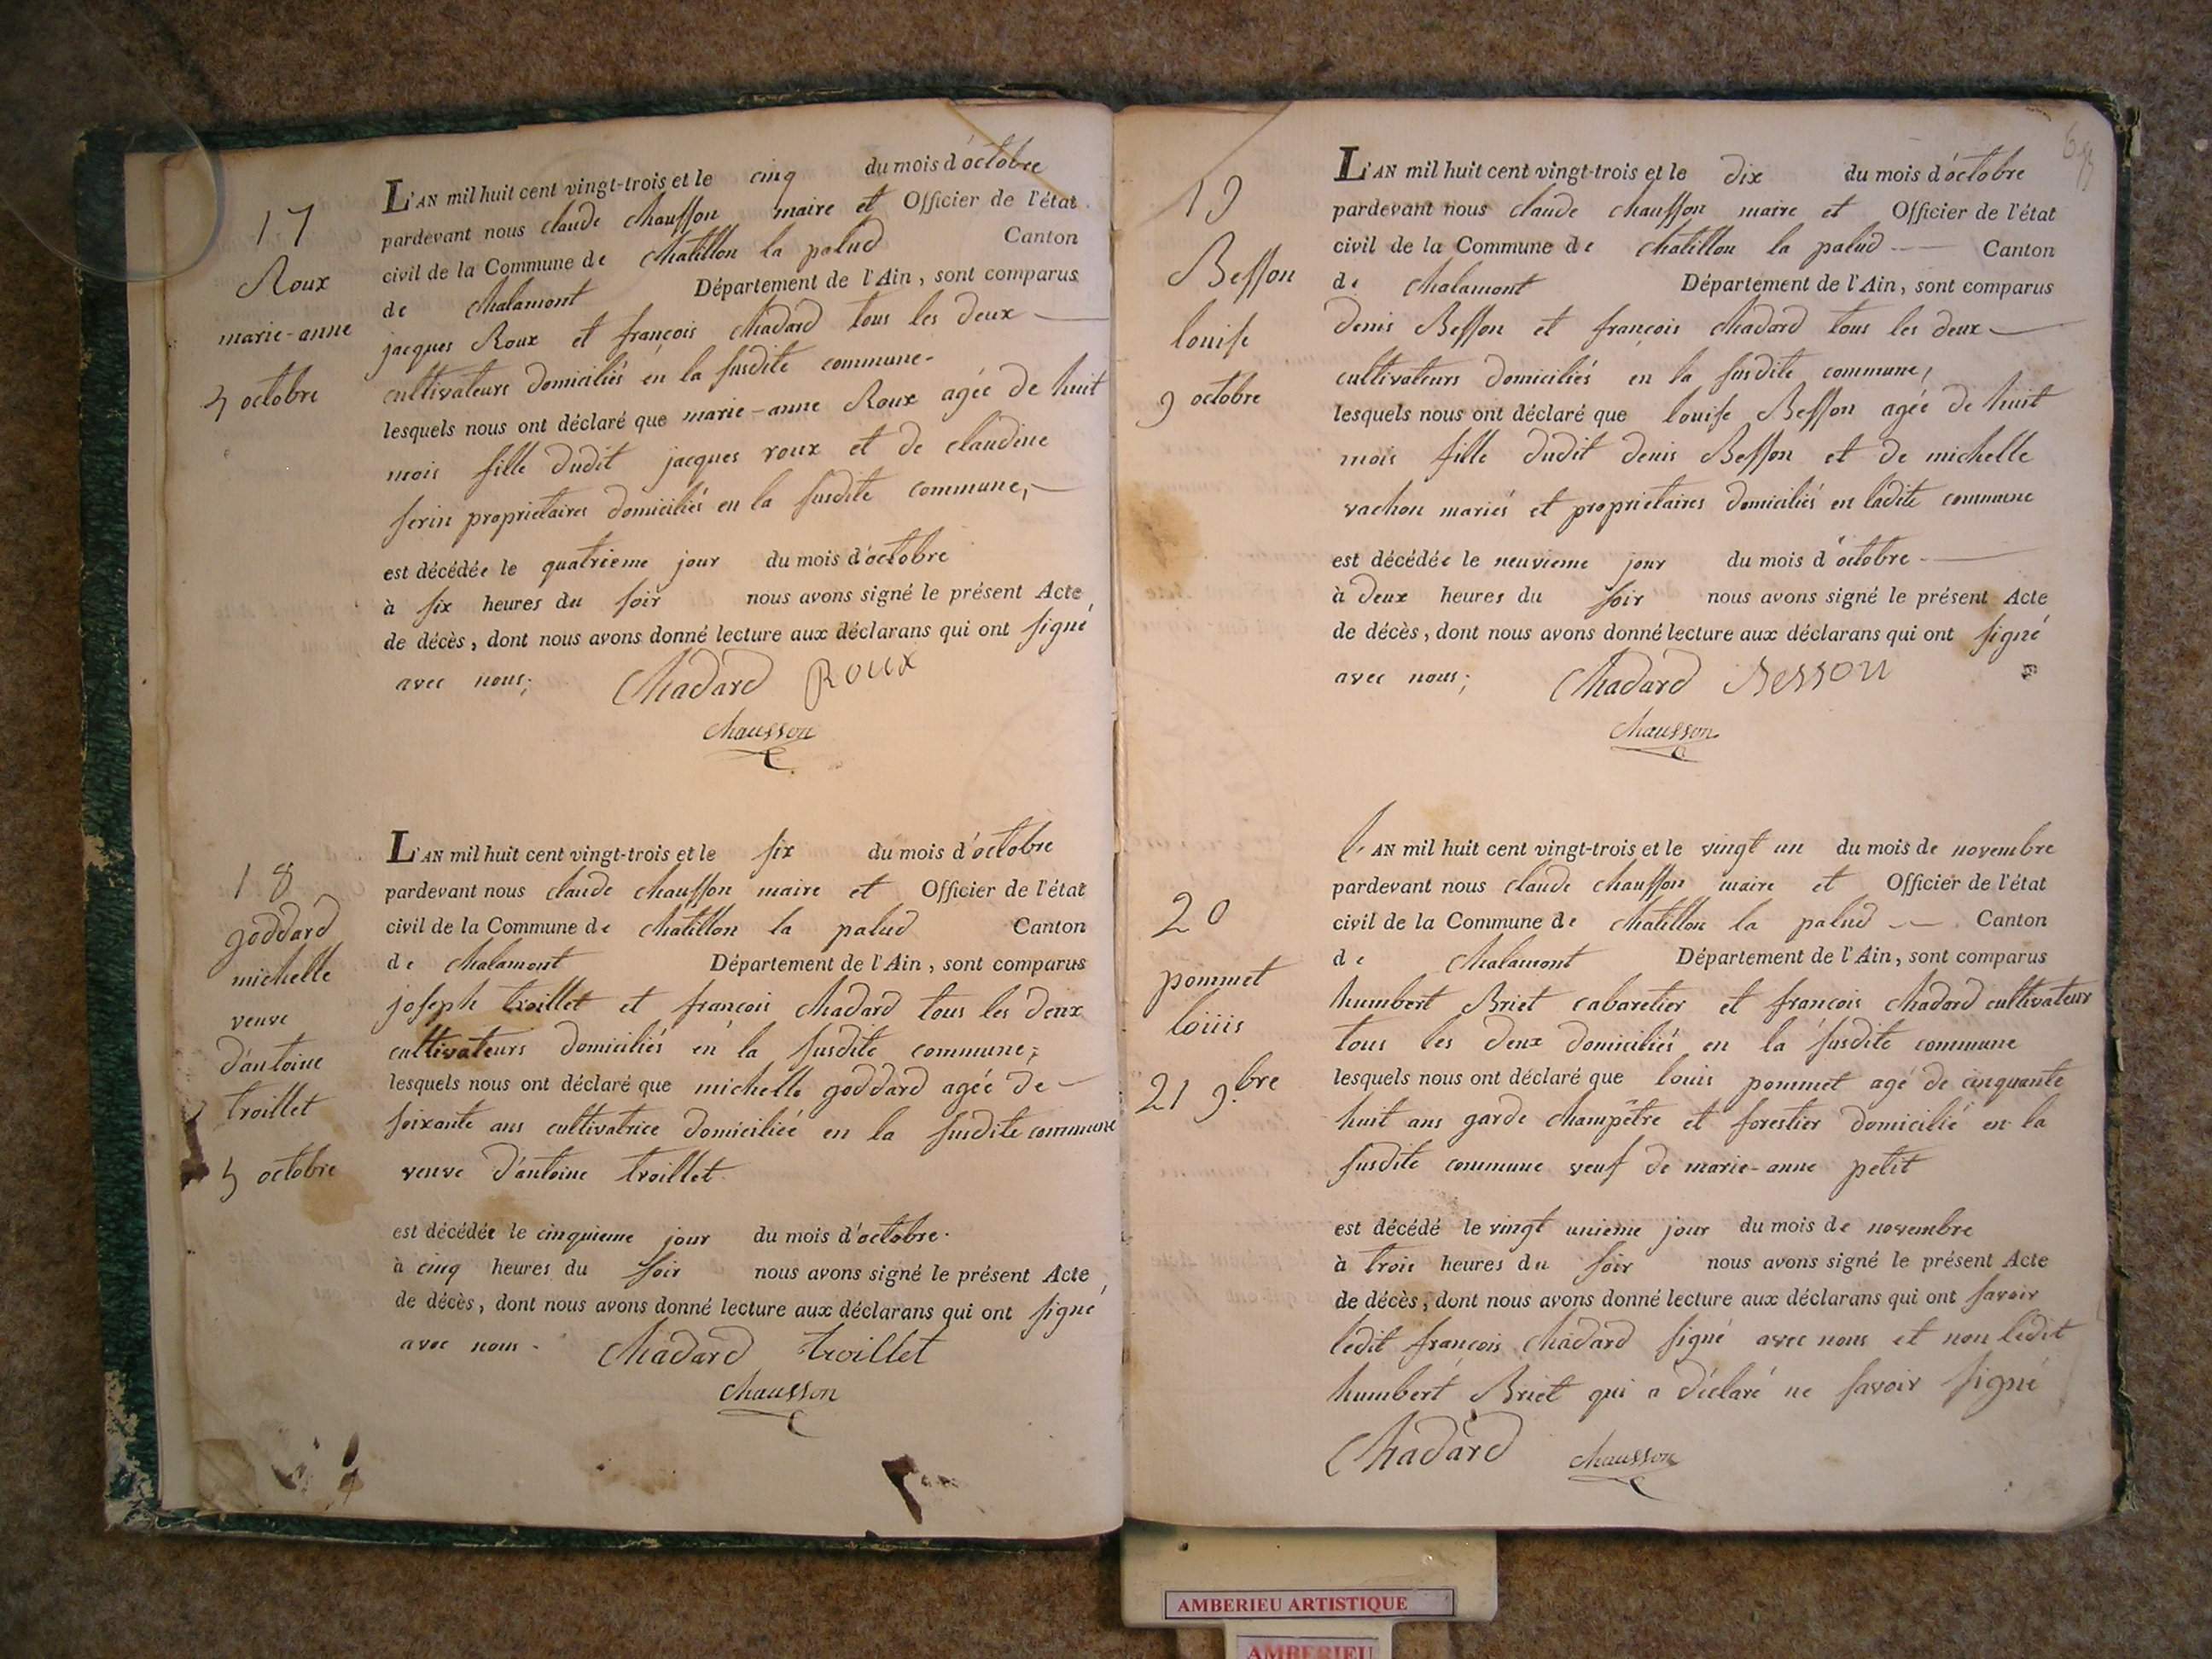 17
Roux
marie-anne
5 octobre
L'AN mil huit cent vingt-trois et le cinq du mois d'octobre
pardevant nous claude chausson maire et Officier de l'état
civil de la Commune de chatillon la palud Canton
de chalamont Département de l'Ain, sont comparus
jacques Roux et françois chadard tous les deux
cultivateurs domiciliés en la susdite commune.
lesquels nous ont déclaré que marie-anne Roux agée de huit
mois fille dudit jacques roux et de claudine
serin proprietaires domiciliés en la susdite commune,
est décédée le quatrieme jour du mois d'octobre
à six heures du soir nous avons signé le présent Acte
de décès, dont nous avons donné lecture aux déclarans qui ont signé
avec nous; Chadard Roux
chausson
18
goddard
michelle
veuve
d'antoine
troillet
5 octobre
L'AN mil huit cent vingt-trois et le six du mois d'octobre
pardevant nous claude chausson maire et Officier de l'état
civil de la Commune de chatillon la palud Canton
de chalamont Département de l'Ain, sont comparus
joseph troillet et françois chadard tous les deux
cultivateurs domiciliés en la susdite commune;
lesquels nous ont déclaré que michelle goddard agée de
soixante ans cultivatrice domiciliée en la susdite commune
veuve d'antoine troillet
est décédée le cinquieme jour du mois d'octobre.
à cinq heures du soir nous avons signé le présent Acte
de décès, dont nous avons donné lecture aux déclarans qui ont signé
avec nous. Chadard troillet
chausson
19
Besson
louise
9 octobre
L'AN mil huit cent vingt-trois et le dix du mois d'octobre
pardevant nous claude chausson maire et Officier de l'état
civil de la Commune de chatillon la palud Canton
de chalamont Département de l'Ain, sont comparus
denis Besson et françois chadard tous les deux
cultivateurs domiciliés en la susdite commune,
lesquels nous ont déclaré que louise Besson agée de huit
mois fille dudit denis Besson et de michelle
vachon mariés et proprietaires domiciliés en ladite commune
est décédée le neuvieme jour du mois d'octobre
à deux heures du soir nous avons signé le présent Acte
de décès, dont nous avons donné lecture aux déclarans qui ont signé
avec nous; Chadard Besson
chausson
20
pommet
loüis
21 9.bre
L'AN mil huit cent vingt-trois et le vingt un du mois de novembre
pardevant nous claude chausson maire et Officier de l'état
civil de la Commune de chatillon la palud Canton
de chalamont Département de l'Ain, sont comparus
humbert Briet cabaretier et françois chadard cultivateur
tous les deux domiciliés en la susdite commune
lesquels nous ont déclaré que louis pommet agé de cinquante
huit ans garde champêtre et forestier domicilié en la
susdite commune veuf de marie-anne petit
est décédé le vingt unieme jour du mois de novembre
à trois heures du soir nous avons signé le présent Acte
de décès, dont nous avons donné lecture aux déclarans qui ont savoir
ledit françois chadard signé avec nous et non ledit
humbert Briet qui a déclaré ne savoir signé
Chadard chausson
AMBERIEU ARTISTIQUE
AMBERIEU